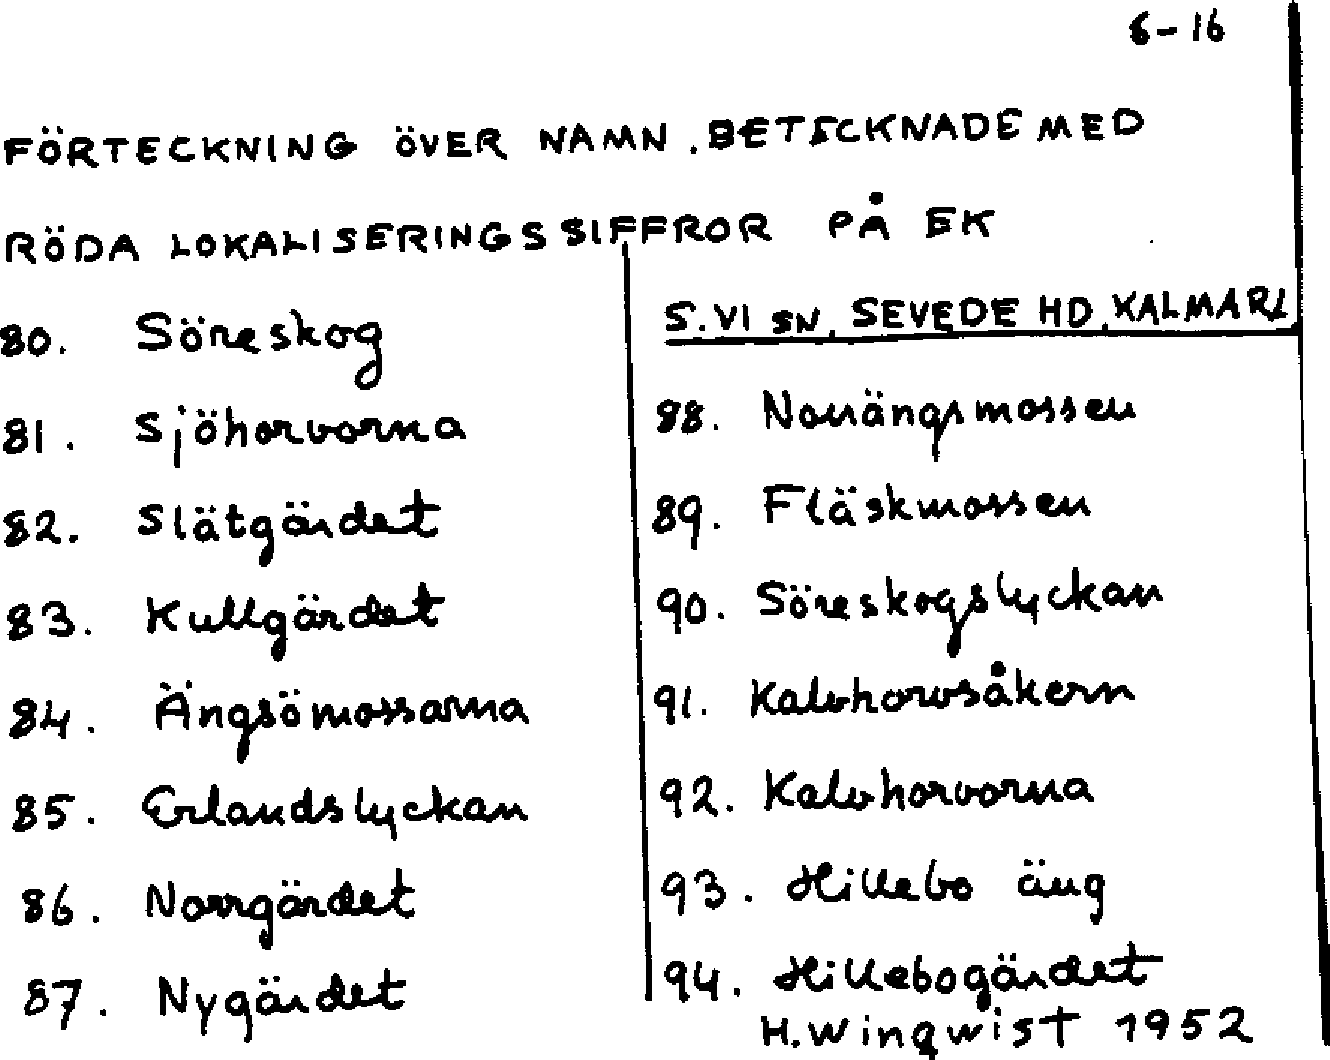 6-16
FÖRTECKNING ÖVER NAMN, BETECKNADE MED
RÖDA LOKALISERINGSSIFFROR PÅ EK
S. VI SN, SEVEDE HD, KALMAR L
80. Söreskog
81. Sjöhorvorna
82. Slätgärdet
83. Kullgärdet
84. Ängsömossarna
85. Erlandslyckan
86. Norrgärdet
87. Nygärdet
88. Norrängsmossen
89. Fläskmossen
90. Söreskogslyckan
91. Kalvhorvsåkern
92. Kalvhorvorna
93. Hillebo äng
94. Hillebogärdet
H. Winqwist 1952